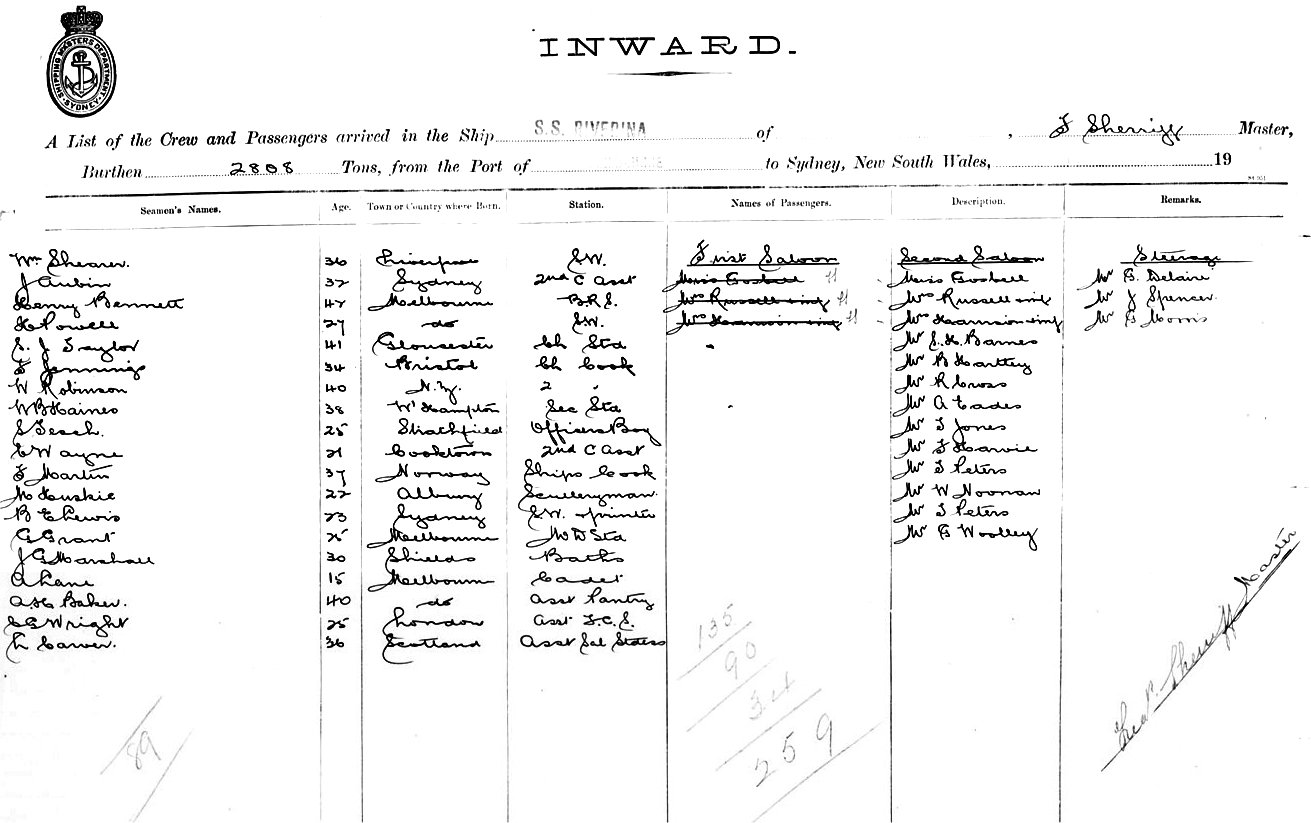 SHIPPING MASTERS DEPARTMENT
SYDNEY
INWARD.
A List of the Crew and Passengers arrived in the Ship S.S. RIVERINA of , F Sherriff Master,
Burthen 2808 Tons, from the Port of to Sydney, New South Wales, 19
Seamen's Names. Age. Town or Country where Born. Station. Names of Passengers. Description. Remarks.
Wm Shearer. 36 Liverpool S.W. First Saloon Second Saloon Steerage
J Aubin 32 Sydney 2nd C Asst Miss Miss Mr G. Delaire
Henry Bennett 42 Melbourne B.R.S. Mrs Russell Mrs Russell Mr J Spencer.
H Powell 27 do S.W. Mrs Mrs Mr G Morris
S. J Taylor 41 Gloucester Ch Std Mr E. H. Barnes
F Jennings 34 Bristol Ch Cook Mr B Hartley
W Robinson 40 N.Z. 2 " Mr R Cross
W B Haines 38 W'Hampton Sec Std Mr A Eades
S Tesch. 25 Strathfield Officers Boy Mr T Jones
C Wayne 21 Cooktown 2nd C Asst Mr F Harvie
F Martin 37 Norway Ships Cook Mr T Peters
M Huskie 22 Albury Scullery man. Mr W Noonan
B E Lewis 23 Sydney S.W. & printer Mr T Peters
G Grant 25 Melbourne M W Std Mr G Woolley
J G Marshall 30 Shields Baths
A Lane 15 Melbourne Cadet
A H Baker. 40 do Asst Pantry
C G Wright 25 London Asst
L Carver. 36 Scotland Asst Sal Stdess
135
90
34
259
89
Geo. P. Sherriff Master